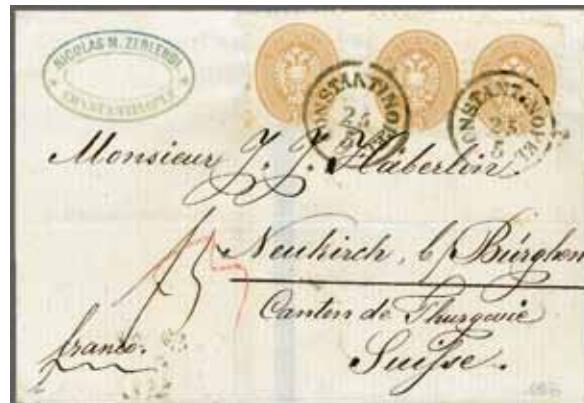 NICOLAS M. ZERLENDI
CONSTANTINOPLE
CONSTANTINOPEL
25
5
CONSTANTINOPEL
25
5
Monsieur J. J. Häberlin.
Neukirch, b/ Bürglen
Canton de Thurgovie
Suisse.
franco.
15